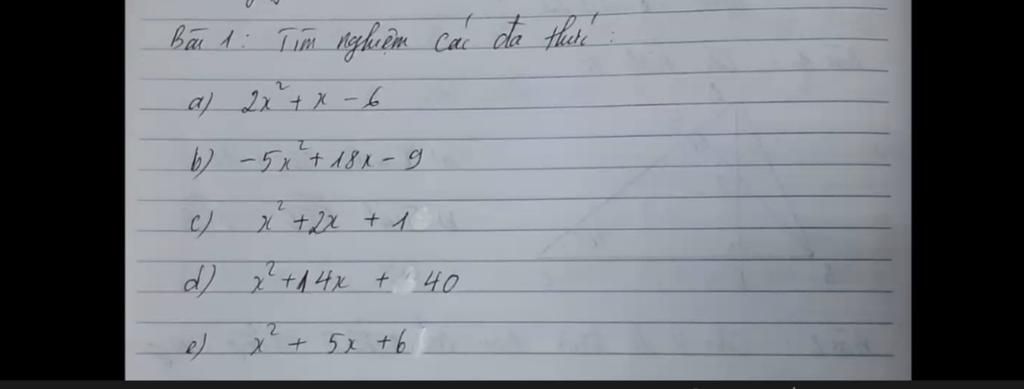 Bài 1: Tìm nghiệm các đa thức:
a) 2x² + x - 6
b) -5x² + 18x - 9
c) x² + 2x + 1
d) x² + 14x + 40
e) x² + 5x + 6